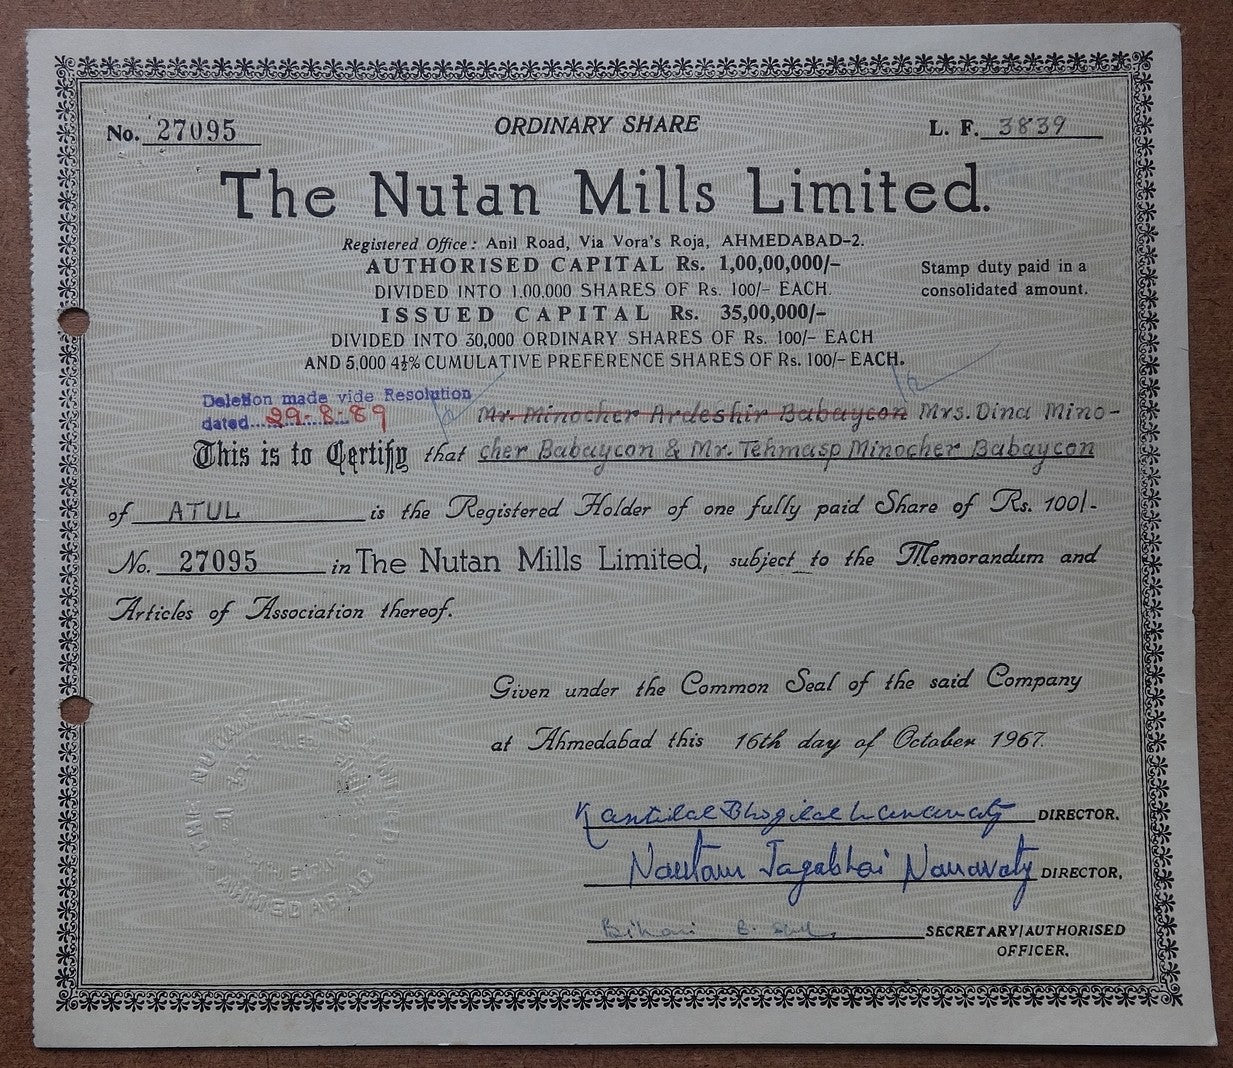 No. 27095
ORDINARY SHARE
L. F. 3839
The Nutan Mills Limited.
Registered Office: Anil Road, Via Vora's Roja, AHMEDABAD-2.
AUTHORISED CAPITAL Rs. 1,00,00,000/-
DIVIDED INTO 1.00.000 SHARES OF Rs. 100/- EACH.
Stamp duty paid in a
consolidated amount.
ISSUED CAPITAL Rs. 35,00,000/-
DIVIDED INTO 30,000 ORDINARY SHARES OF Rs. 100/- EACH
AND 5,000 4½% CUMULATIVE PREFERENCE SHARES OF Rs. 100/- EACH.
Deletion made vide Resolution
dated 29-8-89
Mr. Minocher Ardeshir Babaycon Mrs. Dina Mino-
This is to Certify that cher Babaycon & Mr. Tehmasp Minocher Babaycon
of ATUL is the Registered Holder of one fully paid Share of Rs. 100/-
No. 27095 in The Nutan Mills Limited, subject to the Memorandum and
Articles of Association thereof.
Given under the Common Seal of the said Company
at Ahmedabad this 16th day of October 1967.
Kantilal Bhogilal Nanavaty DIRECTOR.
Nautam Jagabhai Nanavaty DIRECTOR,
Bihari B. SECRETARY/AUTHORISED
OFFICER.
THE NUTAN MILLS LIMITED
AHMEDABAD